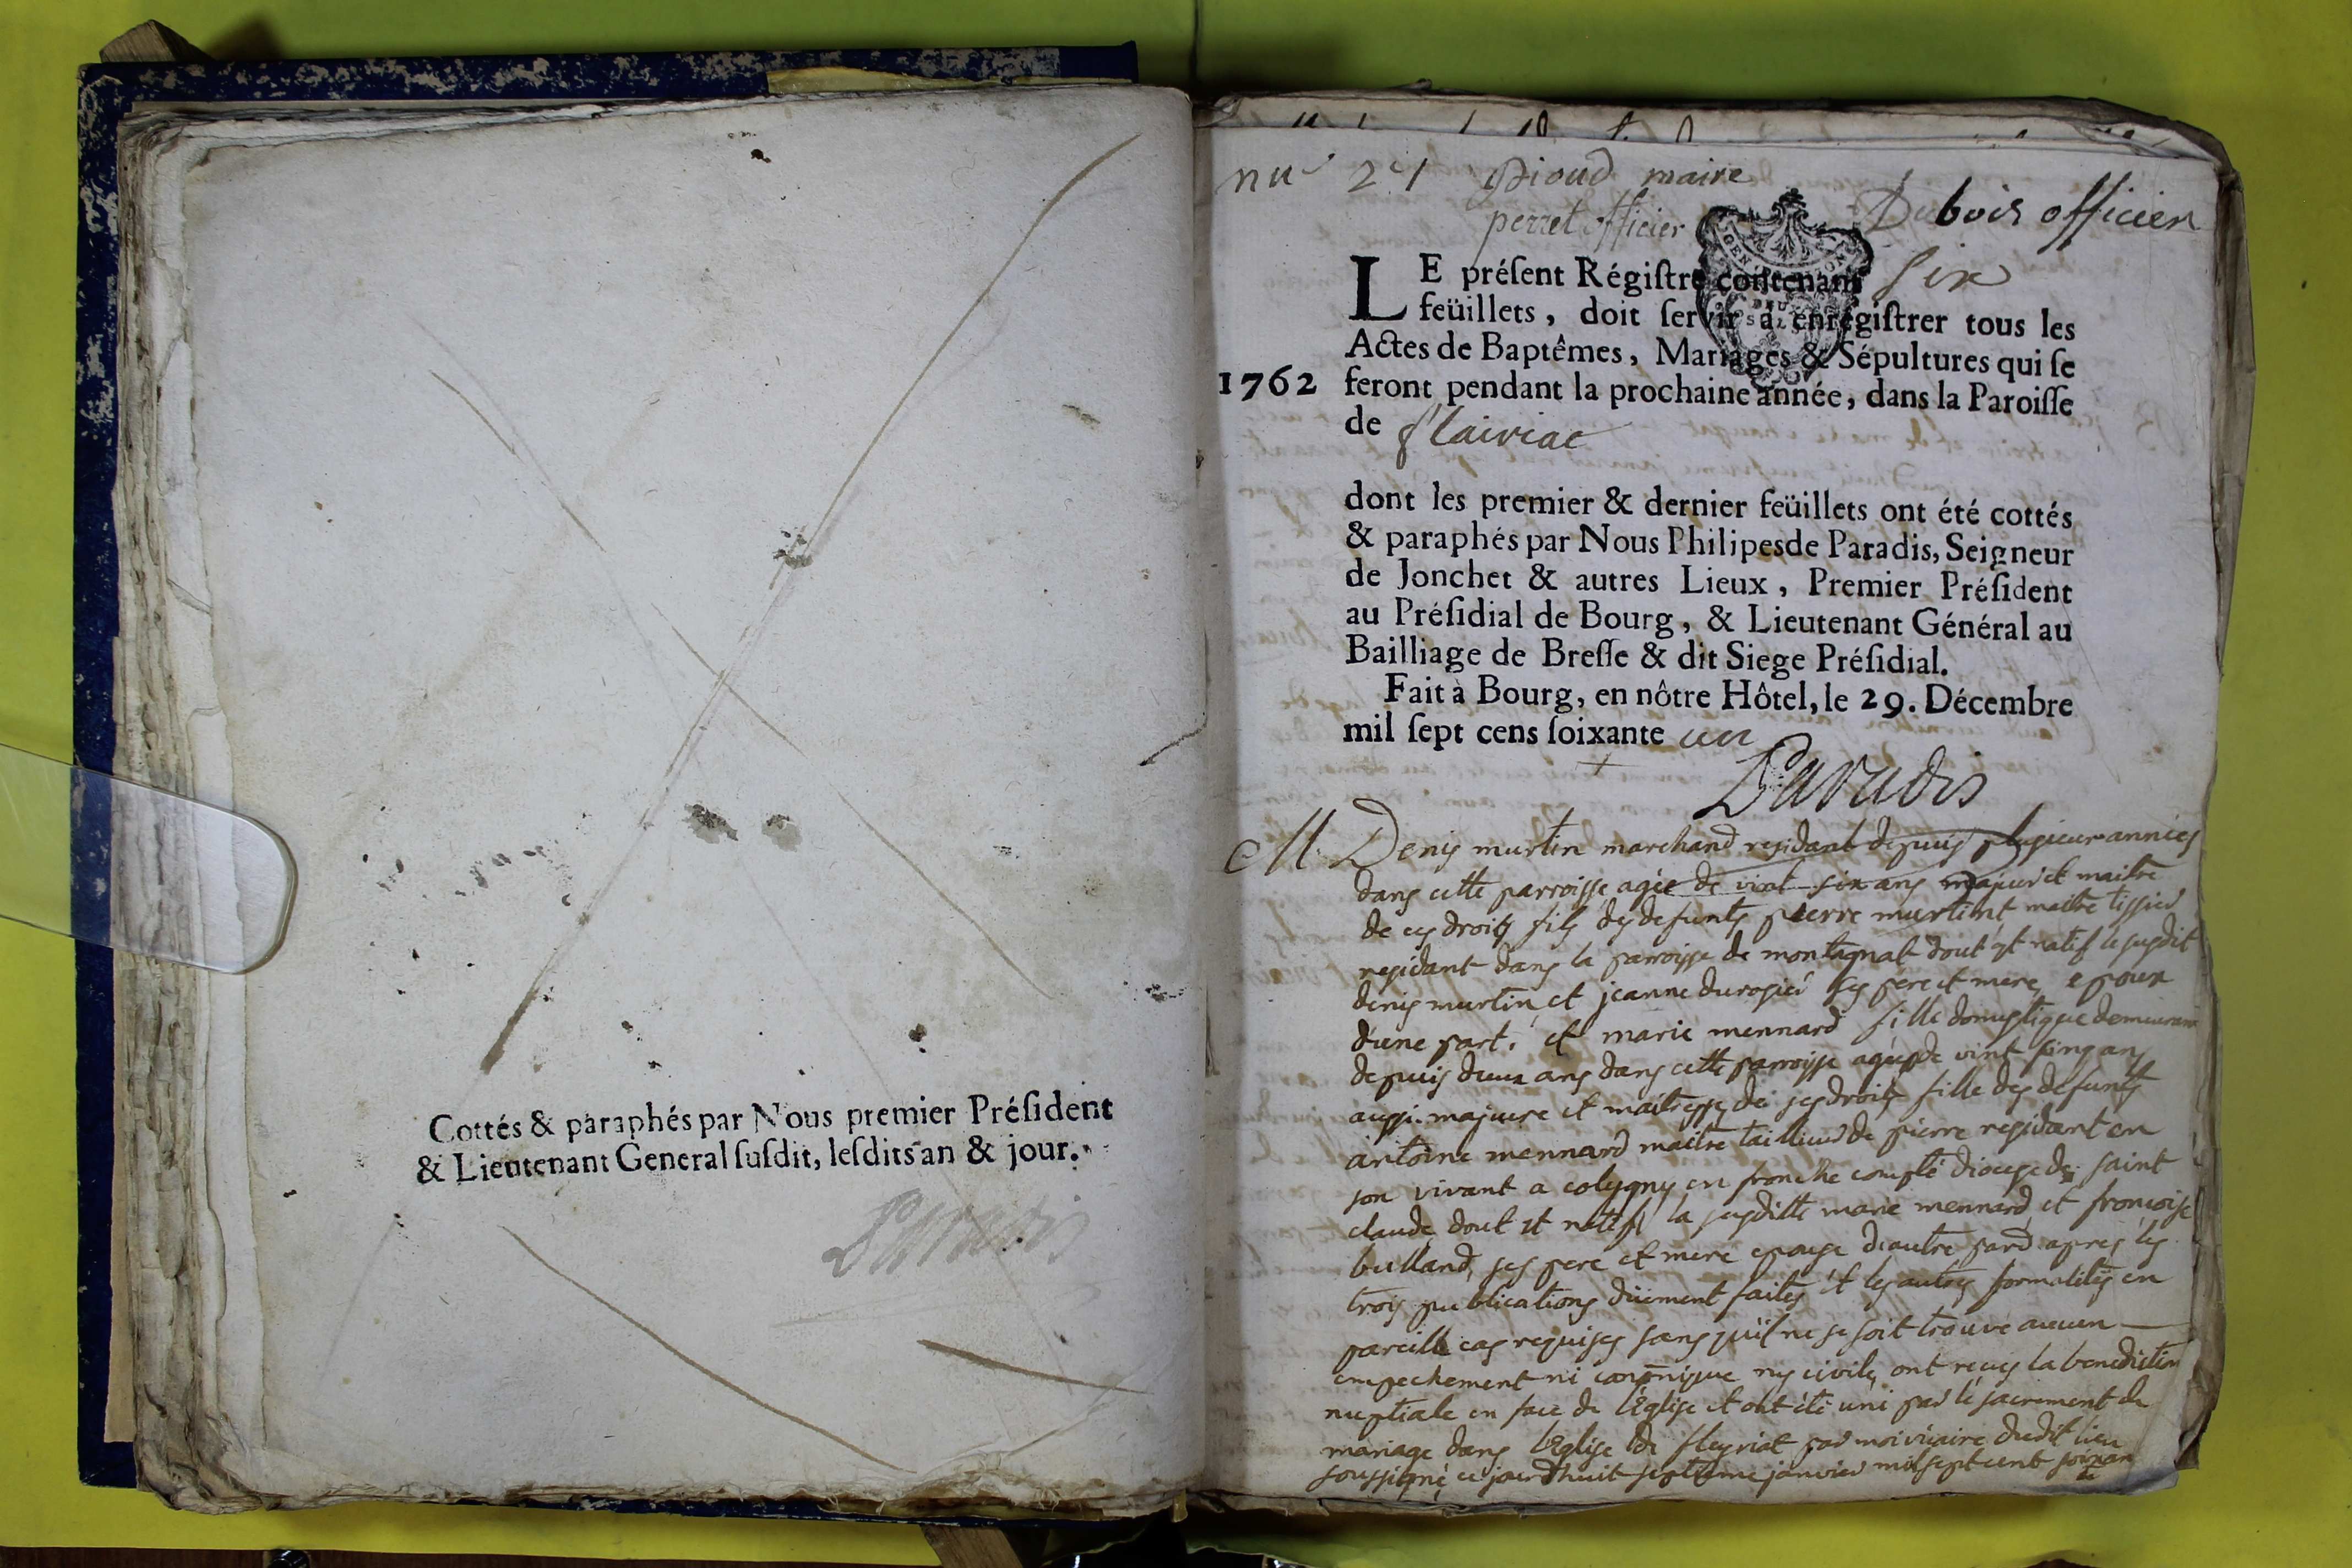 Cottés & paraphés par Nous premier Préſident
& Lieutenant General ſuſdit, leſdits an & jour.
Paradis
nu
pioud maire
perret officier
Dubois officier
LE préſent Régiſtre contenant six
feüillets, doit ſervir à enrégiſtrer tous les
Actes de Baptêmes, Mariages & Sépultures qui ſe
1762 feront pendant la prochaine année, dans la Paroiſſe
de flairiac
dont les premier & dernier feüillets ont été cottés
& paraphés par Nous Philipes de Paradis, Seigneur
de Jonchet & autres Lieux, Premier Préſident
au Préſidial de Bourg, & Lieutenant Général au
Bailliage de Breſſe & dit Siege Préſidial.
Fait à Bourg, en nôtre Hôtel, le 29. Décembre
mil ſept cens ſoixante un
Paradis
M Denis murtin marchand residant depuis plusieur annies
dans cette parroisse agée de vint six ans majeur et maitre
de ces droits fils des defunts pierre murtin et maitre tissier
residant dans la parroisse de montagnat dout est natif le susdit
denis murtin et jeanne durosier ses pere et mere, epoux
d'une part, et marie mennard fille domestique demeurant
depuis deux ans dans cette parroisse agée de vint sinq ans
aussi majeure et maitresse de ses droits fille des defunts
antoine mennard maitre tailleur de pierre residant en
son vivant a colygny en fronche compté diocese de saint
claude dout et natiff la susditte marie mennard et froncoise
bulland ses pere et mere epouse d'autre pard apres les
trois publications düement faites et les autres formalités en
pareille cas requises sans qu'il ne se soit trouvé aucun
empechement ni canonique ny civile, ont reçus la benediction
nuptiale en face de l'Eglise et ont été uni par le sacrement de
mariage dans l'Eglise de fleyriat par moi vicaire dudit lieu
soussigné ce jourdhuit septieme janvier mil sept cent soixan
te